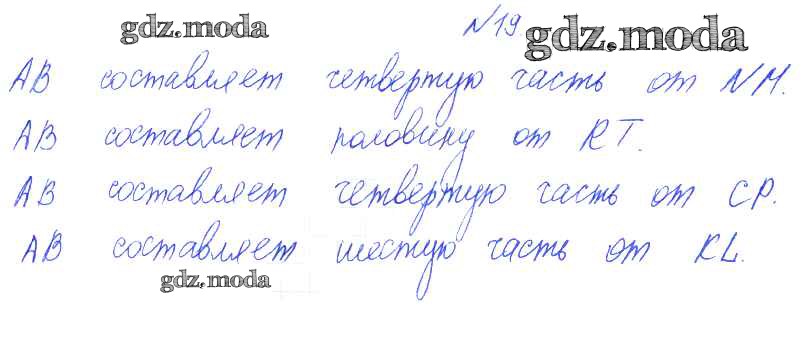 gdz.moda №19. gdz.moda
АВ составляет четвертую часть от NM.
АВ составляет половину от RT.
АВ составляет четвертую часть от CP.
АВ составляет шестую часть от KL.
gdz.moda